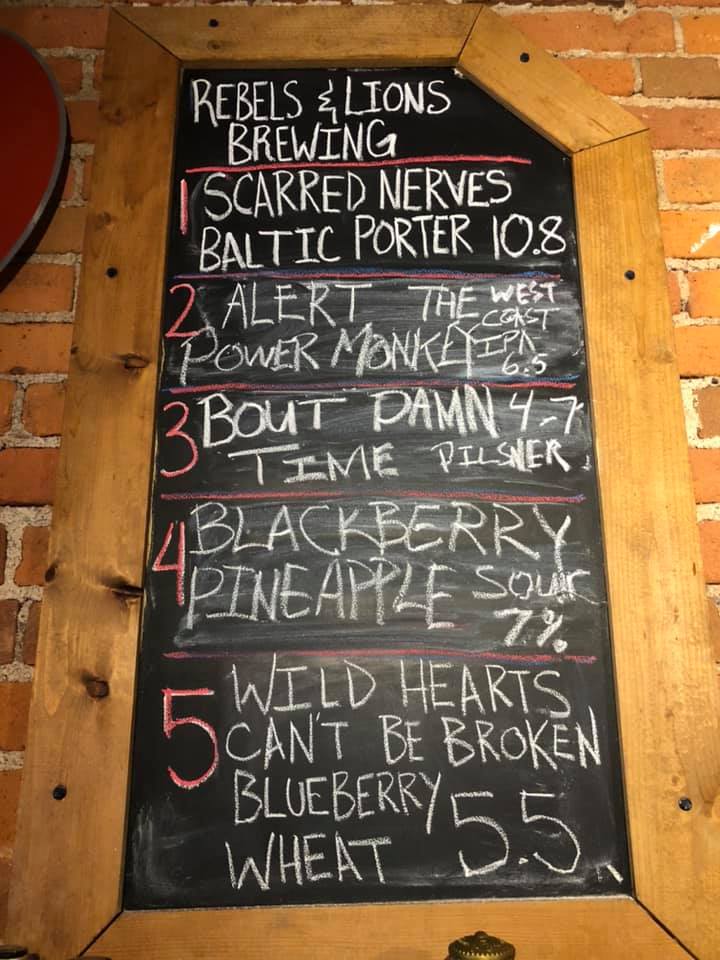 REBELS & LIONS
BREWING
1 SCARRED NERVES
BALTIC PORTER 10.8
2 ALERT THE WEST
COAST
POWER MONKEY IPA
6.5
3 'BOUT DAMN 4.7
TIME PILSNER
4 BLACKBERRY
PINEAPPLE SOUR
7%
5 WILD HEARTS
CAN'T BE BROKEN
BLUEBERRY
WHEAT 5.5